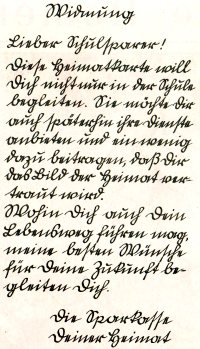 Widmung
Lieber Schulsparer!
Diese Heimatkarte will
Dich nicht nur in der Schule
begleiten. Sie möchte dir
auch späterhin ihre Dienste
anbieten und ein wenig
dazu beitragen, daß Dir
das Bild der Heimat ver-
traut wird.
Wohin Dich auch Dein
Lebensweg führen mag,
meine besten Wünsche
für Deine Zukunft be-
gleiten Dich.
Die Sparkasse
Deiner Heimat